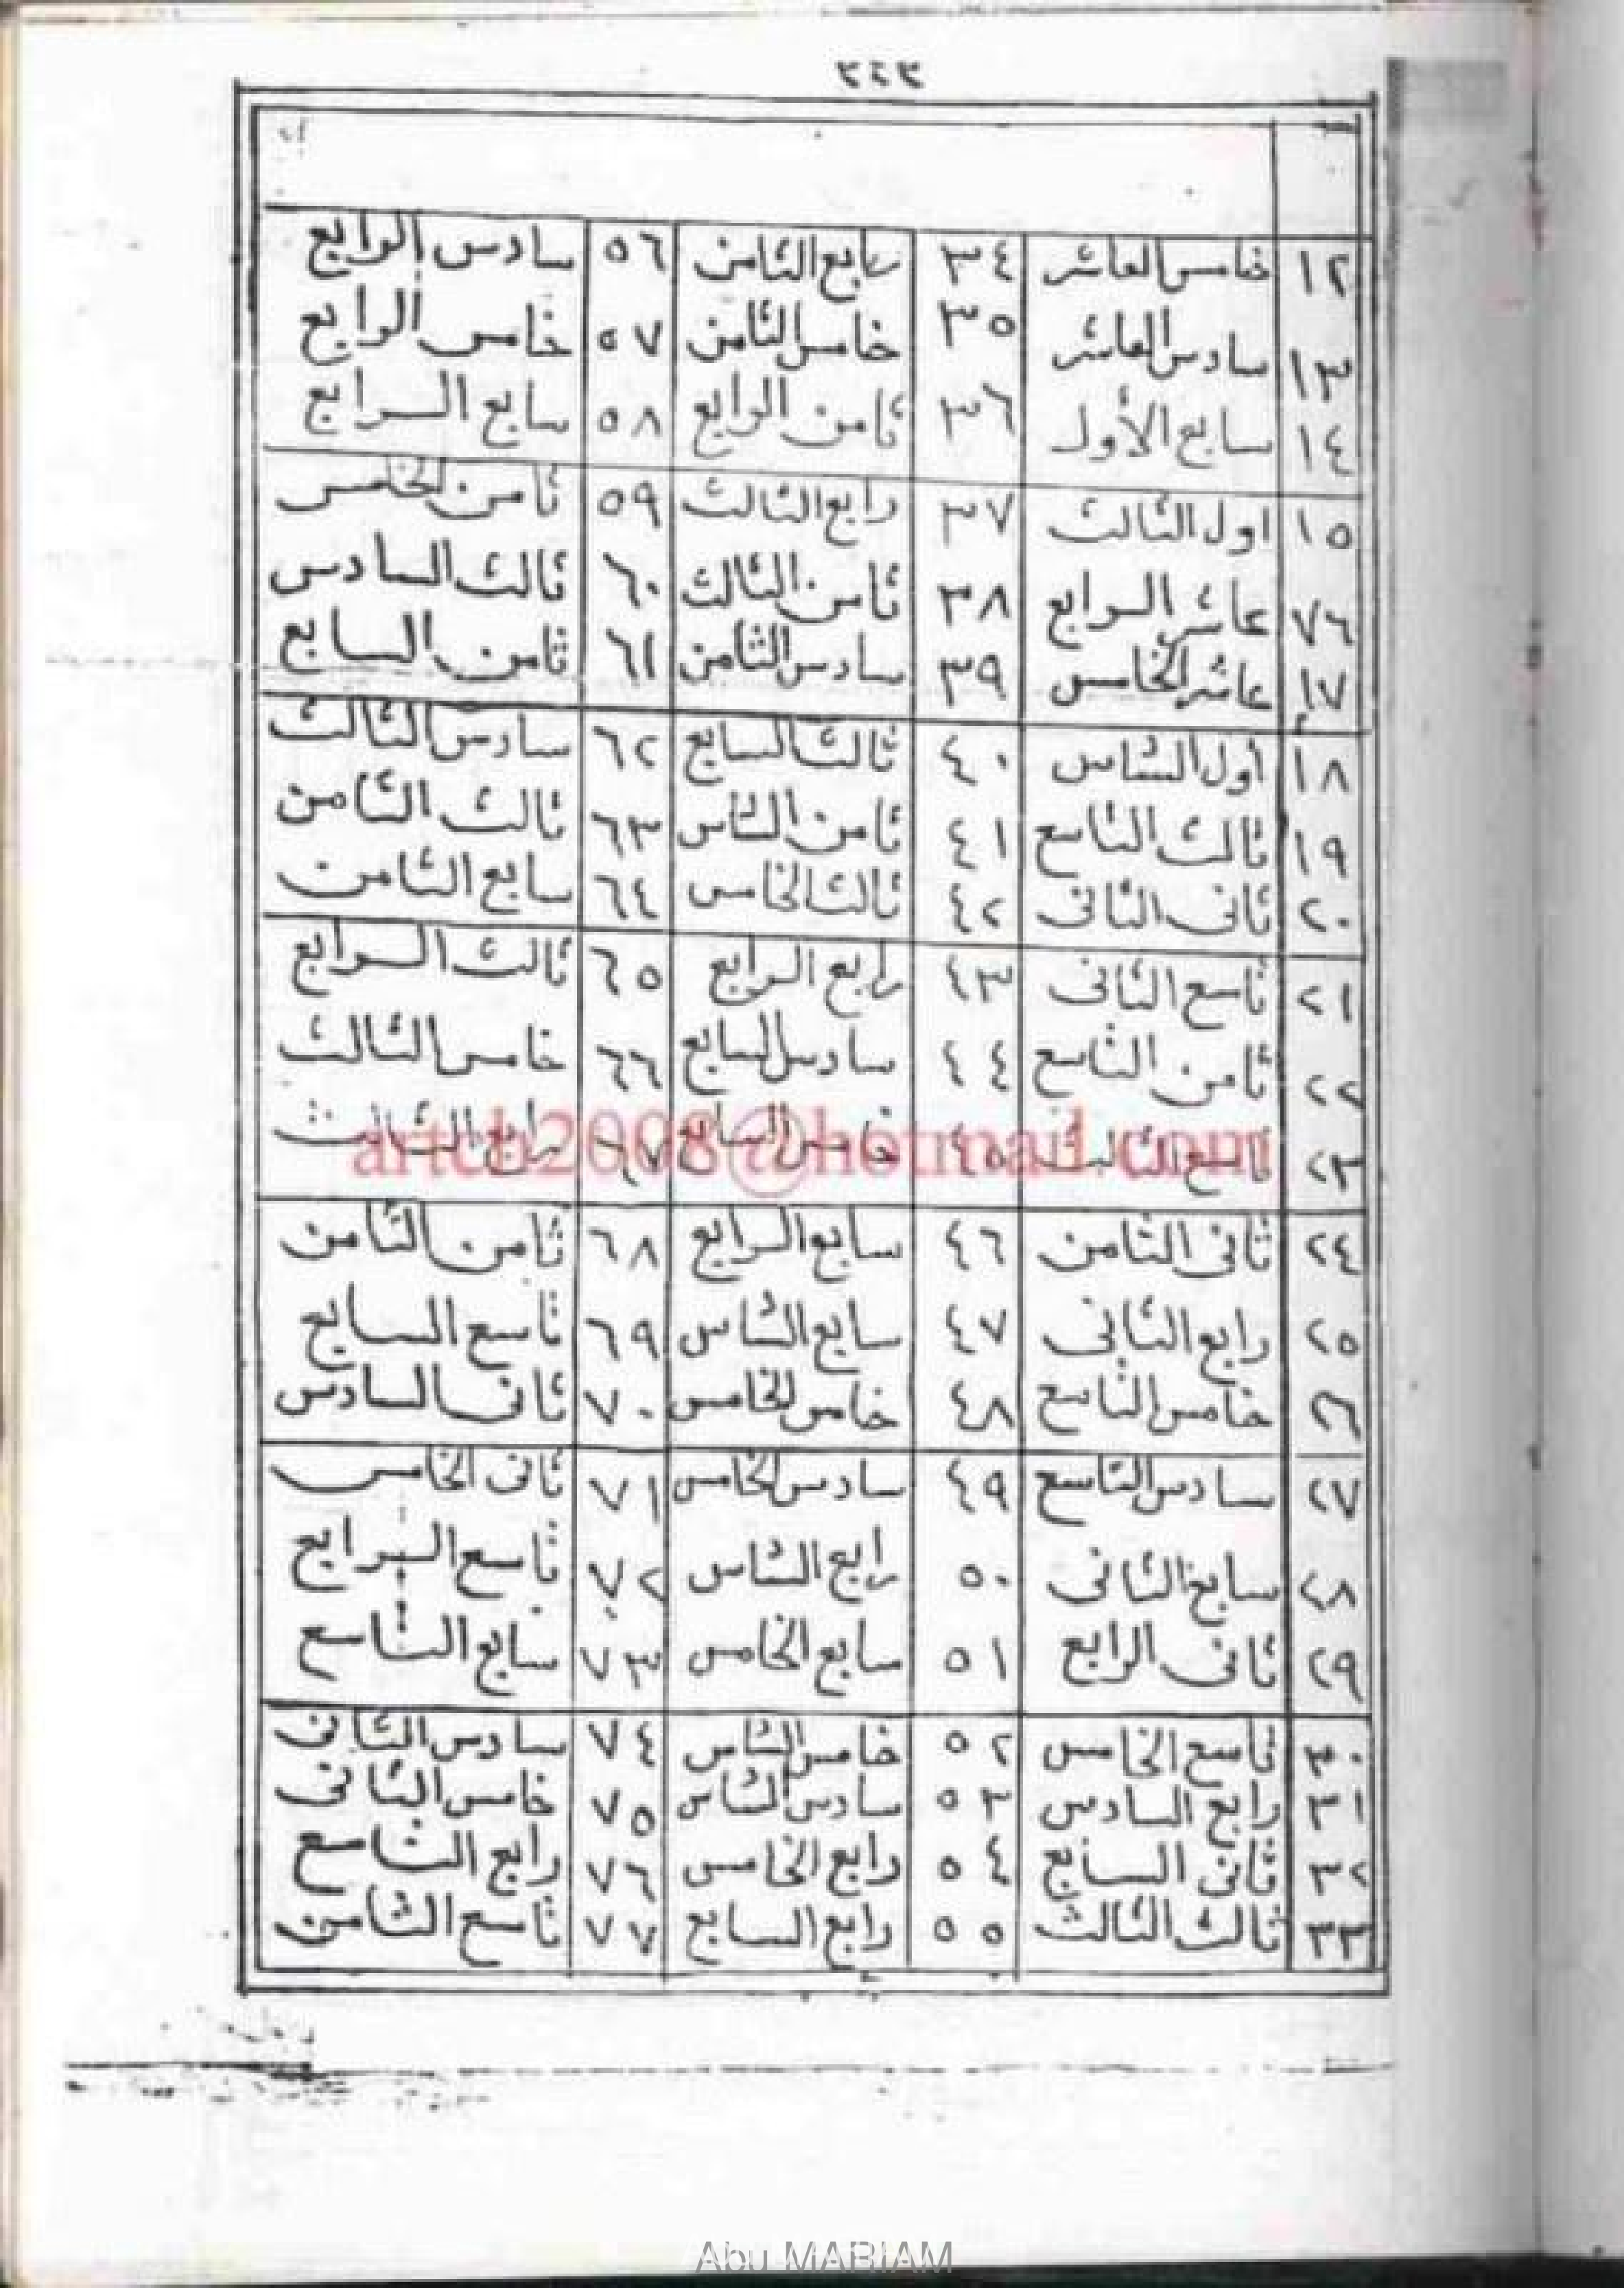 ٣٤٣
١٢ خامس العاشر ٣٤ رابع الثامن ٥٦ سادس الرابع
١٣ سادس العاشر ٣٥ خامس الثامن ٥٧ خامس الرابع
١٤ سابع الأول ٣٦ ثامن الرابع ٥٨ سابع الرابع
١٥ اول الثالث ٣٧ رابع الثالث ٥٩ ثامن الخامس
٧٦ عاشر الرابع ٣٨ ثامن الثالث ٦٠ ثالث السادس
١٧ عاشر الخامس ٣٩ سادس الثامن ٦١ ثامن السابع
١٨ أول الشاس ٤٠ ثالث السابع ٦٢ سادس الثالث
١٩ ثالث التاسع ٤١ ثامن الشاس ٦٣ ثالث الثامن
٢٠ ثانى الثانى ٤٢ ثالث الخامس ٦٤ سابع الثامن
٢١ تاسع الثانى ٤٣ رابع الرابع ٦٥ ثالث الرابع
٢٢ ثامن التاسع ٤٤ سادس السابع ٦٦ خامس الثالث
٢٣ تاسع ٤٥ خامس السابع ٦٧
artcb2008@hotmail.com
٢٤ ثانى الثامن ٤٦ سابع الرابع ٦٨ ثامن الثامن
٢٥ رابع الثانى ٤٧ سابع الشاس ٦٩ تاسع السابع
٢٦ خامس التاسع ٤٨ خامس الخامس ٧٠ ثانى السادس
٢٧ سادس التاسع ٤٩ سادس الخامس ٧١ ثانى الخامس
٢٨ سابع الثانى ٥٠ رابع الشاس ٧٢ تاسع الرابع
٢٩ ثانى الرابع ٥١ سابع الخامس ٧٣ سابع التاسع
٣٠ تاسع الخامس ٥٢ خامس الشاس ٧٤ سادس الثانى
٣١ رابع السادس ٥٣ سادس الشاس ٧٥ خامس الثانى
٣٢ ثانى السابع ٥٤ رابع الخامس ٧٦ رابع التاسع
٣٣ ثالث الثالث ٥٥ رابع السابع ٧٧ تاسع الثامن
Abu MARIAM